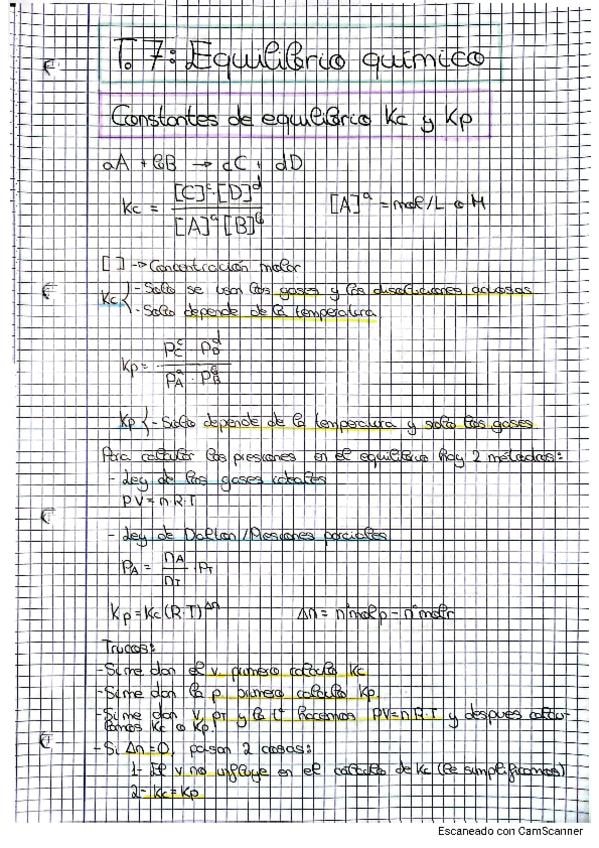 T.7: Equilibrio químico
Constantes de equilibrio Kc y Kp
aA + bB → cC + dD
Kc = [C]^c·[D]^d / [A]^a [B]^b
[A]^a = mol/L o M
[ ] → Concentración molar
Kc { - Solo se ven los gases y las disoluciones acuosas
- Solo depende de la temperatura
Kp = P_C^c · P_D^d / P_A^a · P_B^b
Kp { - Solo depende de la temperatura y solo los gases
Para calcular las presiones en el equilibrio hay 2 métodos:
- Ley de los gases ideales
PV = n·R·T
- Ley de Dalton / Presiones parciales
P_A = n_A / n_T · P_T
Kp = Kc (R·T)^Δn
Δn = nºmolp - nºmolr
Trucos:
- Si me dan el v, primero calculo Kc
- Si me dan la p, primero calculo Kp
- Si me dan v, PT y la tª hacemos PV=nRT y después calcu-
lamos Kc o Kp
- Si Δn=0, pasan 2 cosas:
1- El v no influye en el cálculo de Kc (le simplificamos)
2- Kc = Kp
Escaneado con CamScanner